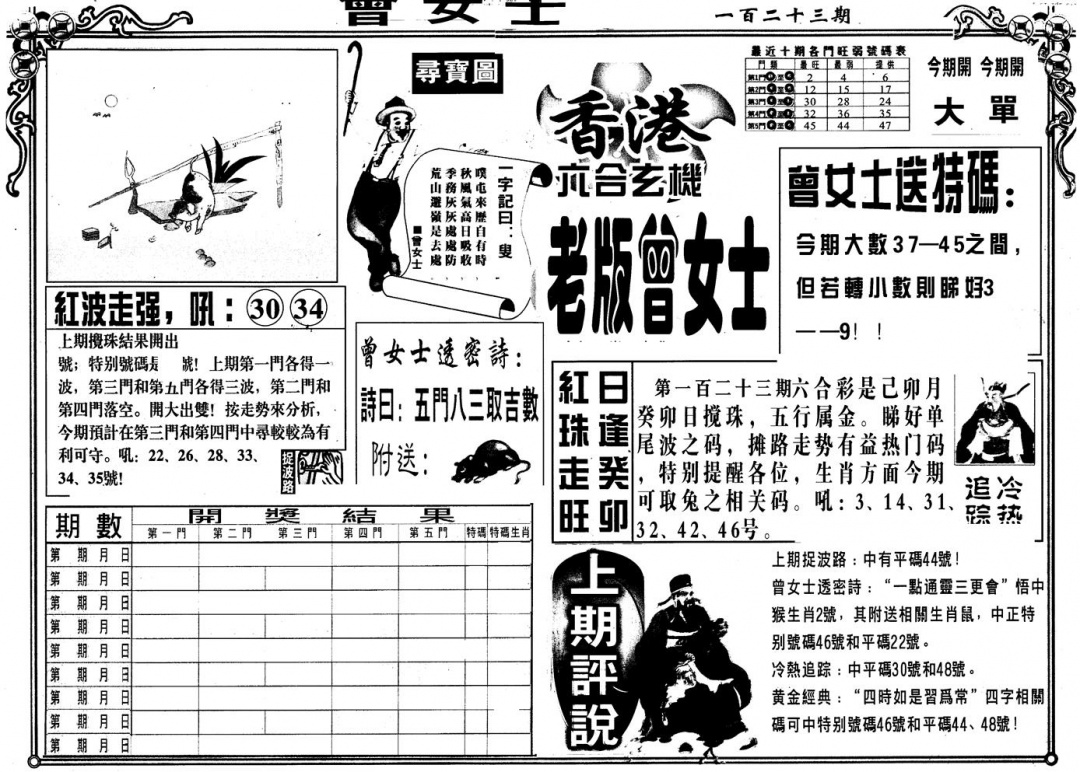 曾女士
一百二十三期
尋寶圖
一字記曰：叟
噗屯來歷自有時
秋風氣高日吸收
季務灰灰處處防
荒山遷嶺是去處
■曾女士
香港
六合玄機
老版曾女士
最近十期各門旺弱號碼表
門類 最旺 最弱 提供
第1門 2 4 6
第2門 12 15 17
第3門 30 28 24
第4門 32 36 35
第5門 45 44 47
今期開 今期開
大 單
曾女士送特碼：
今期大數37—45之間，
但若轉小數則睇好3
——9！！
紅波走强，吼：30 34
上期攪珠結果開出
號；特别號碼是 號！上期第一門各得一
波，第三門和第五門各得三波，第二門和
第四門落空。開大出雙！按走勢來分析，
今期預計在第三門和第四門中尋較較為有
利可守。吼：22、26、28、33、
34、35號！
捉波路
曾女士透密詩：
詩曰：五門八三取吉數
附送：
日逢癸卯
紅珠走旺
第一百二十三期六合彩是己卯月
癸卯日搅珠，五行属金。睇好单
尾波之码，摊路走势有益热门码
，特别提醒各位，生肖方面今期
可取兔之相关码。吼：3、14、31、
32、42、46号。
冷热
追踪
期數 開獎結果
第一門 第二門 第三門 第四門 第五門 特碼 特碼生肖
第 期 月 日
第 期 月 日
第 期 月 日
第 期 月 日
第 期 月 日
第 期 月 日
第 期 月 日
第 期 月 日
第 期 月 日
上期評說
上期捉波路：中有平碼44號！
曾女士透密詩：“一點通靈三更會”悟中
猴生肖2號，其附送相關生肖鼠，中正特
别號碼46號和平碼22號。
冷熱追踪：中平碼30號和48號。
黄金經典：“四時如是習爲常”四字相關
碼可中特别號碼46號和平碼44、48號！